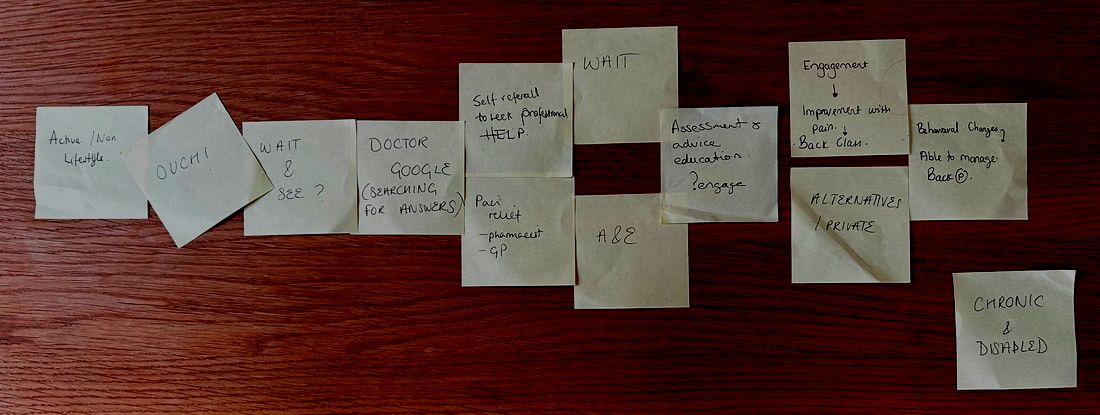 Active / Non
Lifestyle.
OUCH!
WAIT
&
SEE ?
DOCTOR
GOOGLE
(SEARCHING
FOR ANSWERS)
Self referall
to seek professional
HELP.
Pain
relief
- pharmacist
- GP
WAIT
A&E
Assessment &
advice
education
? engage
Engagement
↓
Improvement with
pain. ↓
Back Class.
ALTERNATIVES
/ PRIVATE
Behavioral Changes
Able to manage
Back Ⓟ.
CHRONIC
&
DISABLED